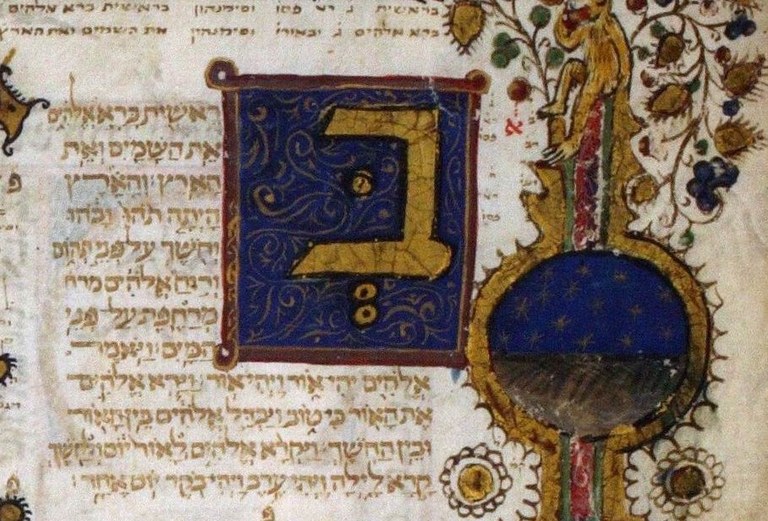 בראשית ג רא פסו וסימנהון בראשית ברא אלהים
ברא אלהים ג וסימנהון את השמים ואת הארץ
בראשית ברא אלהים
את השמים ואת
הארץ והארץ
היתה תהו ובהו
וחשך על פני תהום
ורוח אלהים מרח
מרחפת על פני
המים ויאמר
אלהים יהי אור ויהי אור וירא אלהים
את האור כי טוב ויבדל אלהים בין האור
ובין החשך ויקרא אלהים לאור יום ולחשך
קרא לילה ויהי ערב ויהי בקר יום אחד
פ
א